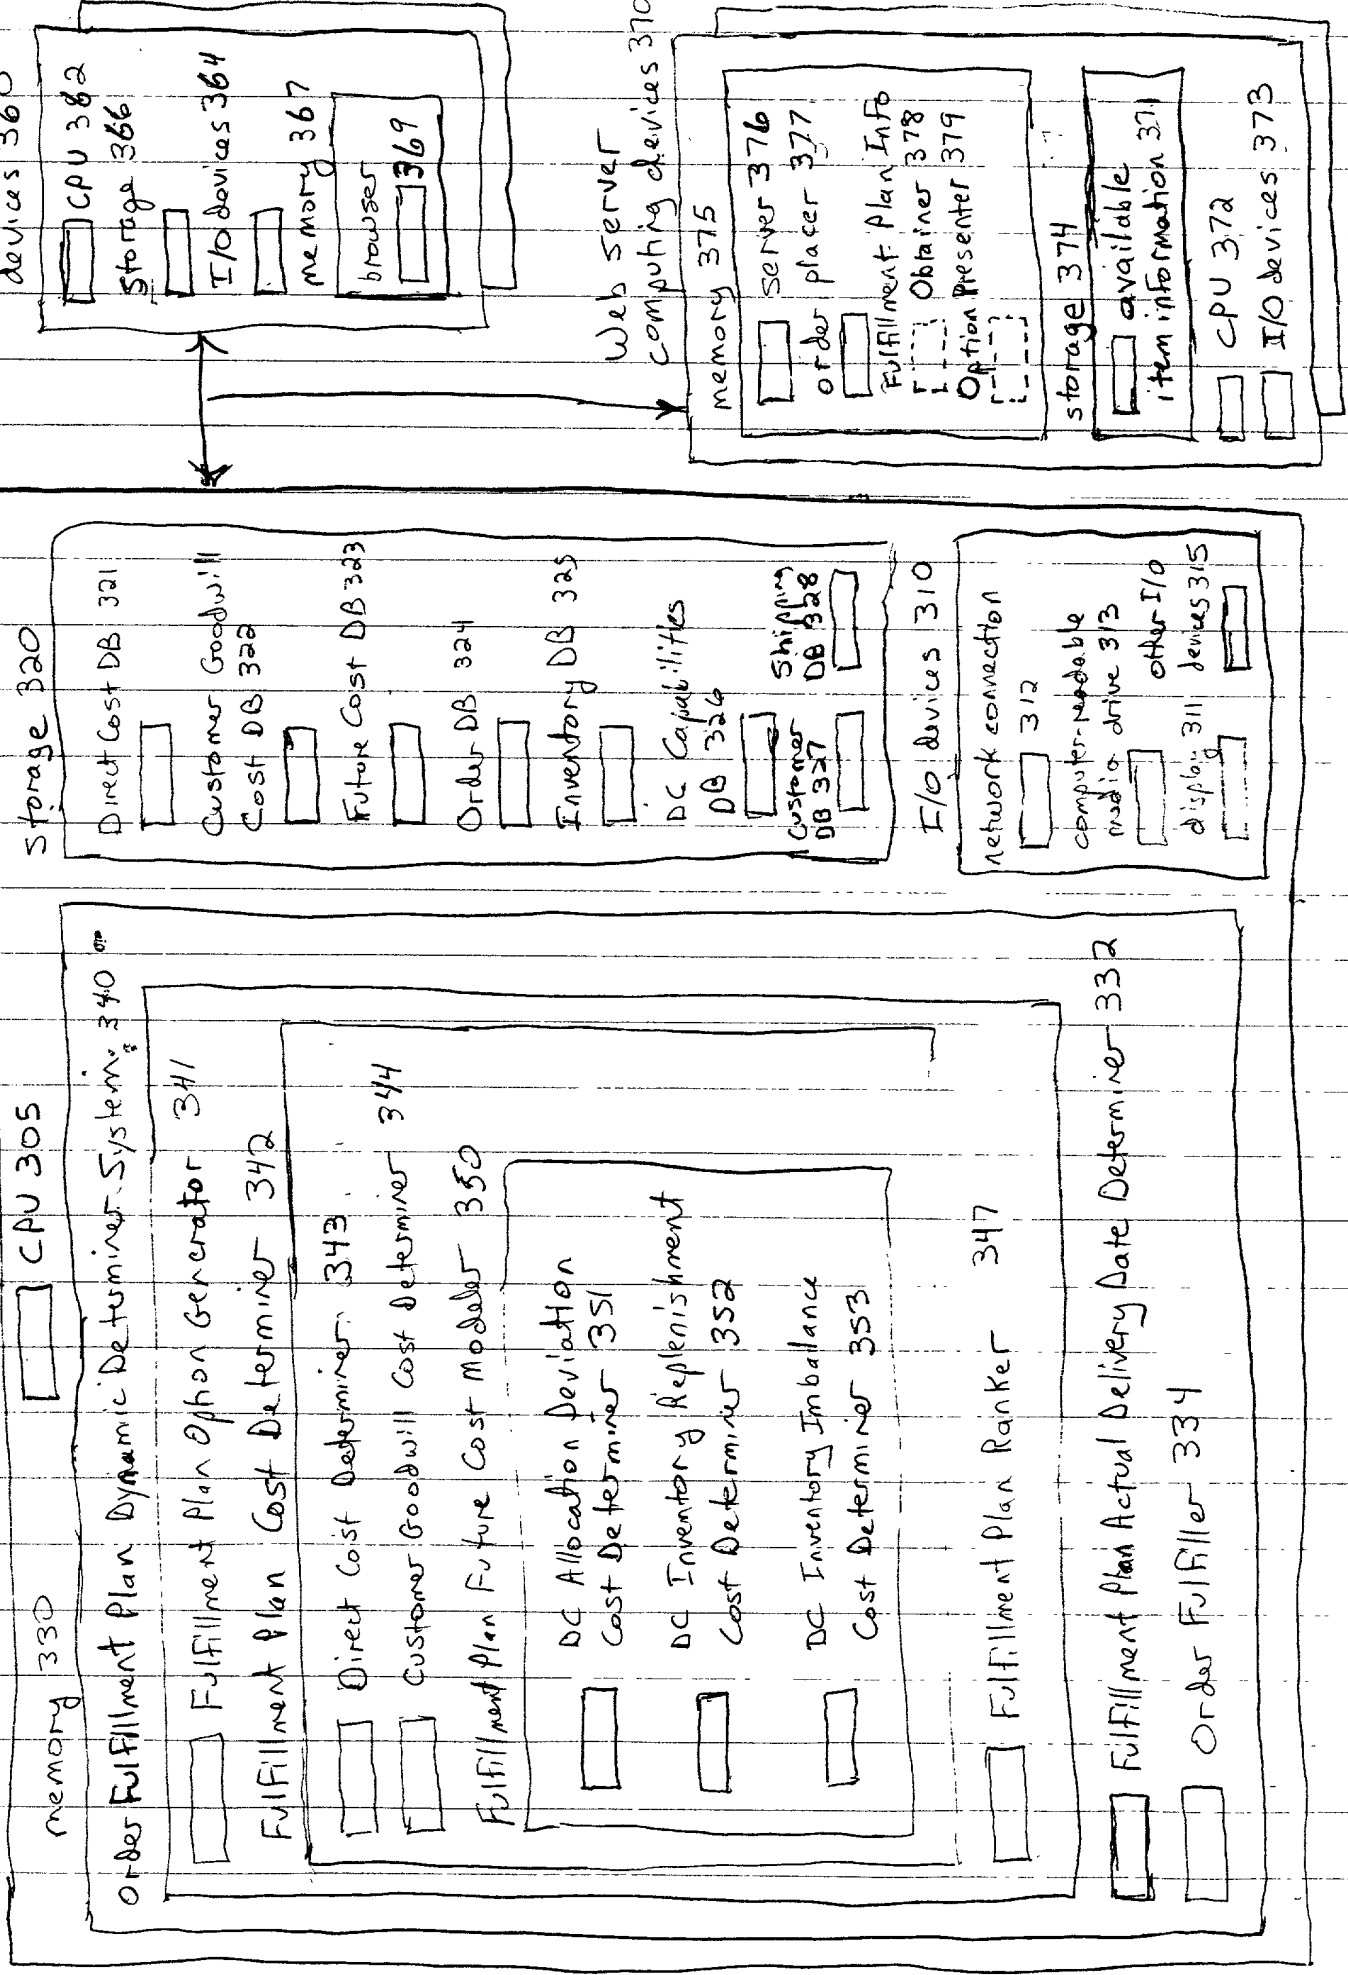 CPU 305
memory 330
Order Fulfillment Plan Dynamic Determiner System 340
Fulfillment Plan Option Generator 341
Fulfillment Plan Cost Determiner 342
Direct Cost Determiner 343
Customer Goodwill Cost Determiner 344
Fulfillment Plan Future Cost Modeler 350
DC Allocation Deviation
Cost Determiner 351
DC Inventory Replenishment
Cost Determiner 352
DC Inventory Imbalance
Cost Determiner 353
Fulfillment Plan Ranker 347
Fulfillment Plan Actual Delivery Date Determiner 332
Order Fulfiller 334
storage 320
Direct Cost DB 321
Customer Goodwill
Cost DB 322
Future Cost DB 323
Order DB 324
Inventory DB 325
DC Capabilities
DB 326
Customer
DB 327
Shipping
DB 328
I/O devices 310
network connection
312
computer-readable
media drive 313
display 311
other I/O
devices 315
devices 360
CPU 362
Storage 366
I/O devices 364
memory 367
browser
369
Web server
computing devices 370
memory 375
server 376
order placer 377
Fulfillment Plan Info
Obtainer 378
Option Presenter 379
storage 374
available
item information 371
CPU 372
I/O devices 373